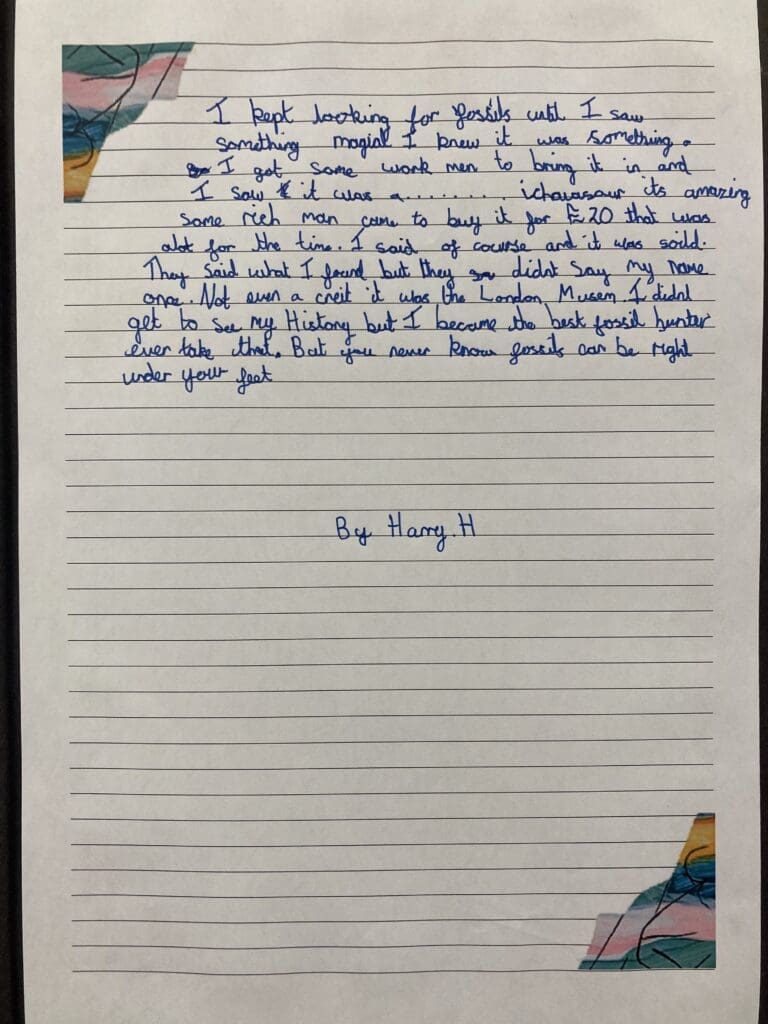 I kept looking for fossils until I saw
something magial I knew it was something.
I got some work men to bring it in and
I saw it was a......... ichavasaur its amazing
some rich man came to buy it for £20 that was
alot for the time. I said of course and it was soild.
They said what I found but they didnt say my name
once. Not even a creit it was the London Musem I didnt
get to see my History but I became the best fossil hunter
ever take that. But you never know fossils can be right
under your feet
By Harry.H